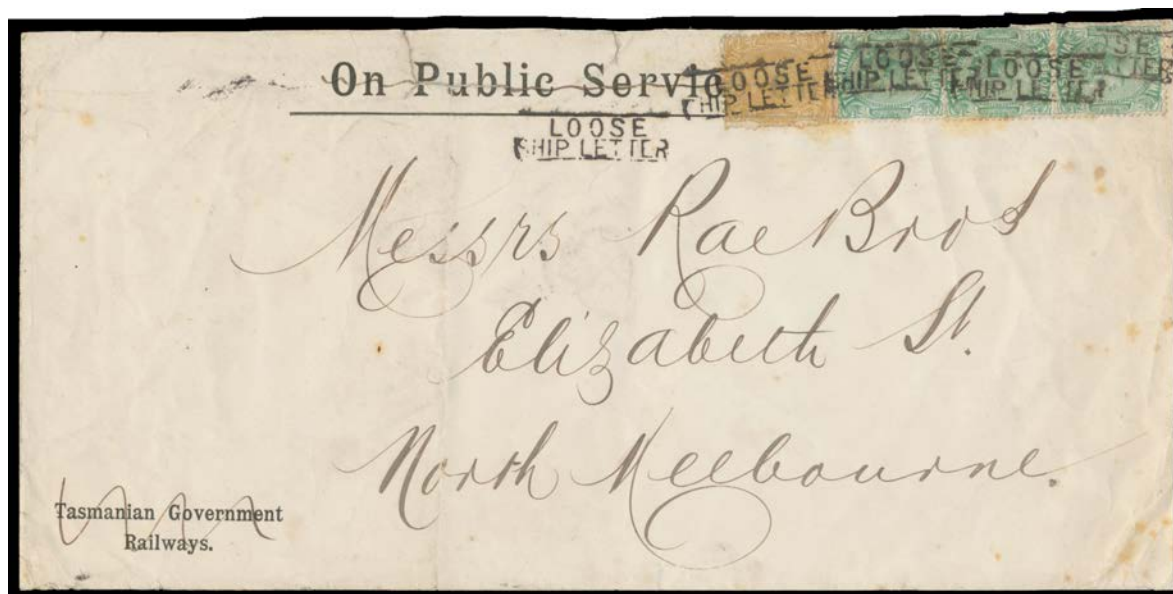 On Public Service
LOOSE
SHIP LETTER
LOOSE
SHIP LETTER
LOOSE
SHIP LETTER
LOOSE
SHIP LETTER
SE
LETTER
Messrs Rae Bros
Elizabeth St.
North Melbourne.
Tasmanian Government
Railways.